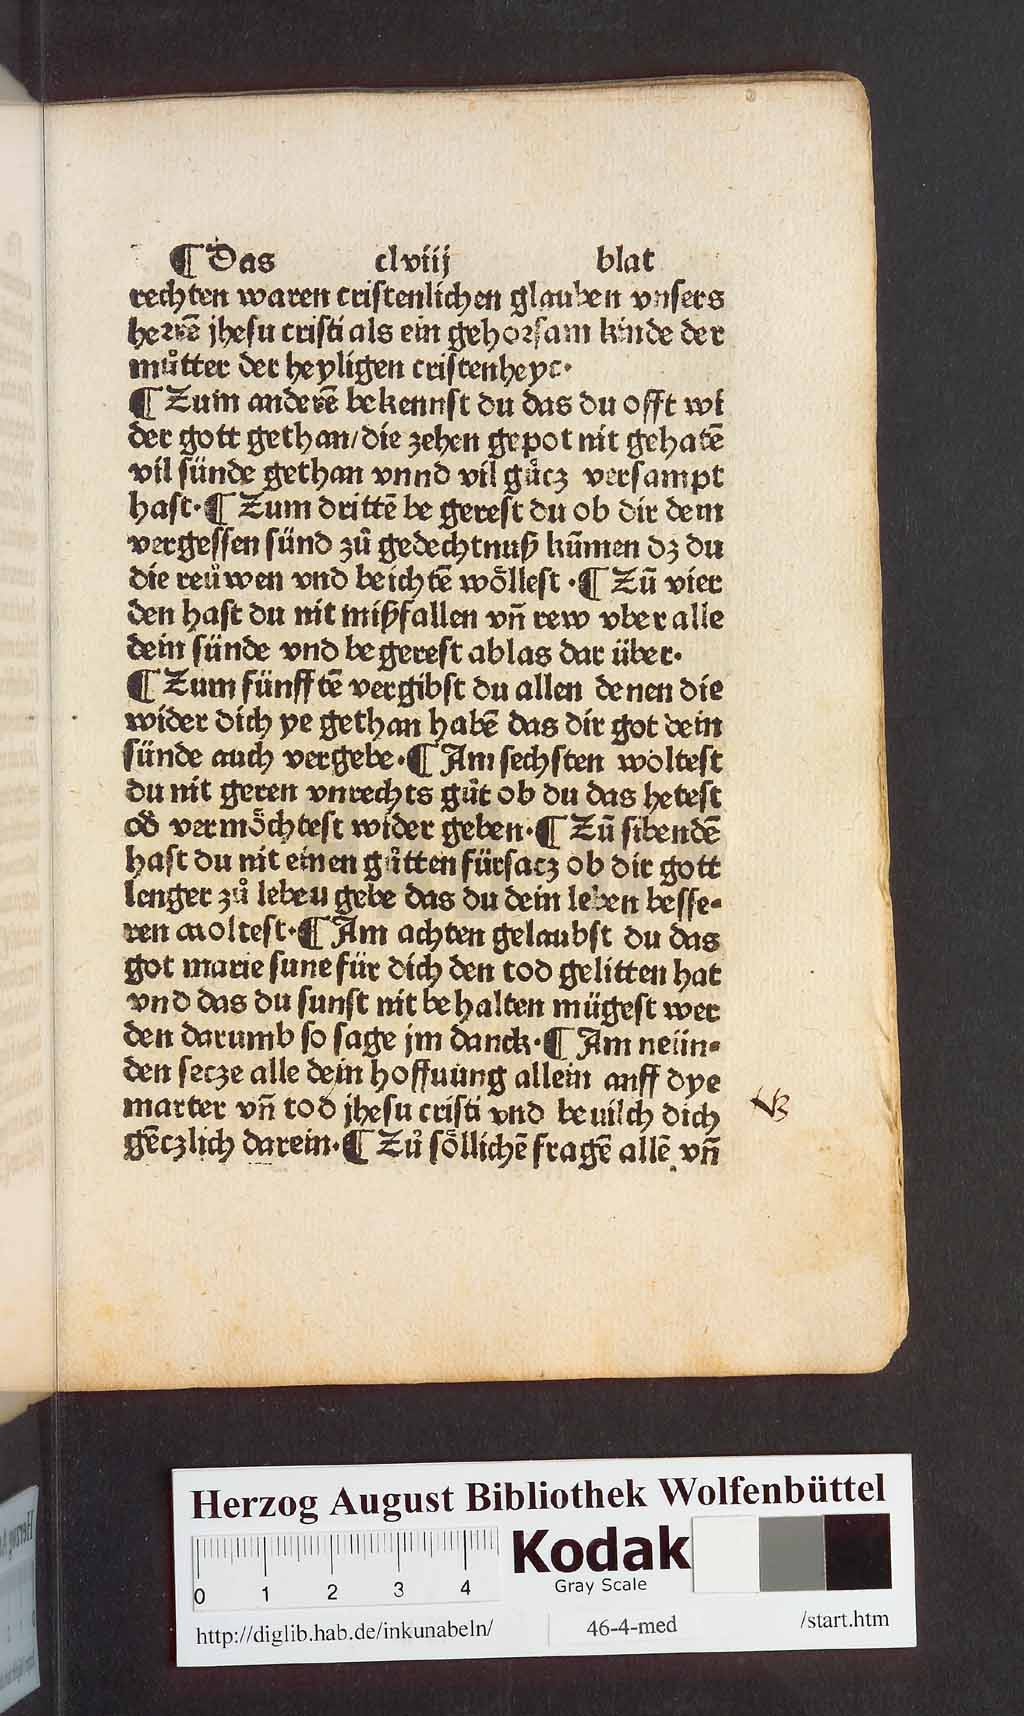 ¶ Das clviij blat
rechten waren cristenlichen glauben vnsers
herrē jhesu cristi als ein gehorsam kinde der
můtter der heyligen cristenheyt.
¶ Zum anderē bekennst du das du offt wi
der gott gethan/die zehen gepot nit gehatē
vil sünde gethan vnnd vil gůcz versampt
hast. ¶ Zum drittē be gerest du ob dir dem
vergessen sünd zů gedechtnuß kūmen dz du
die reůwen vnd beichtē wöllest . ¶ Zū vier
den hast du nit mißfallen vn̄ rew vber alle
dein sünde vnd be gerest ablas dar über.
¶ Zum fünfftē vergibst du allen denen die
wider dich ye gethan habē das dir got dein
sünde auch vergebe. ¶ Am sechsten woltest
du nit geren vnrechts gůt ob du das hetest
od̄ vermöchtest wider geben. ¶ Zū sibendē
hast du nit einen gůtten fürsacz ob dir gott
lenger zů lebeu gebe das du dein leben besse-
ren woltest. ¶ Am achten gelaubst du das
got marie sune für dich den tod gelitten hat
vnd das du sunst nit be halten mügest wer
den darumb so sage jm danck. ¶ Am neün-
den secze alle dein hoffuung allein anff dye
marter vn̄ tod jhesu cristi vnd beuilch dich
gēczlich darein. ¶ Zů söllichē fragē allē vn̄
NB
Herzog August Bibliothek Wolfenbüttel
Kodak
Gray Scale
0 1 2 3 4
http://diglib.hab.de/inkunabeln/ 46-4-med /start.htm